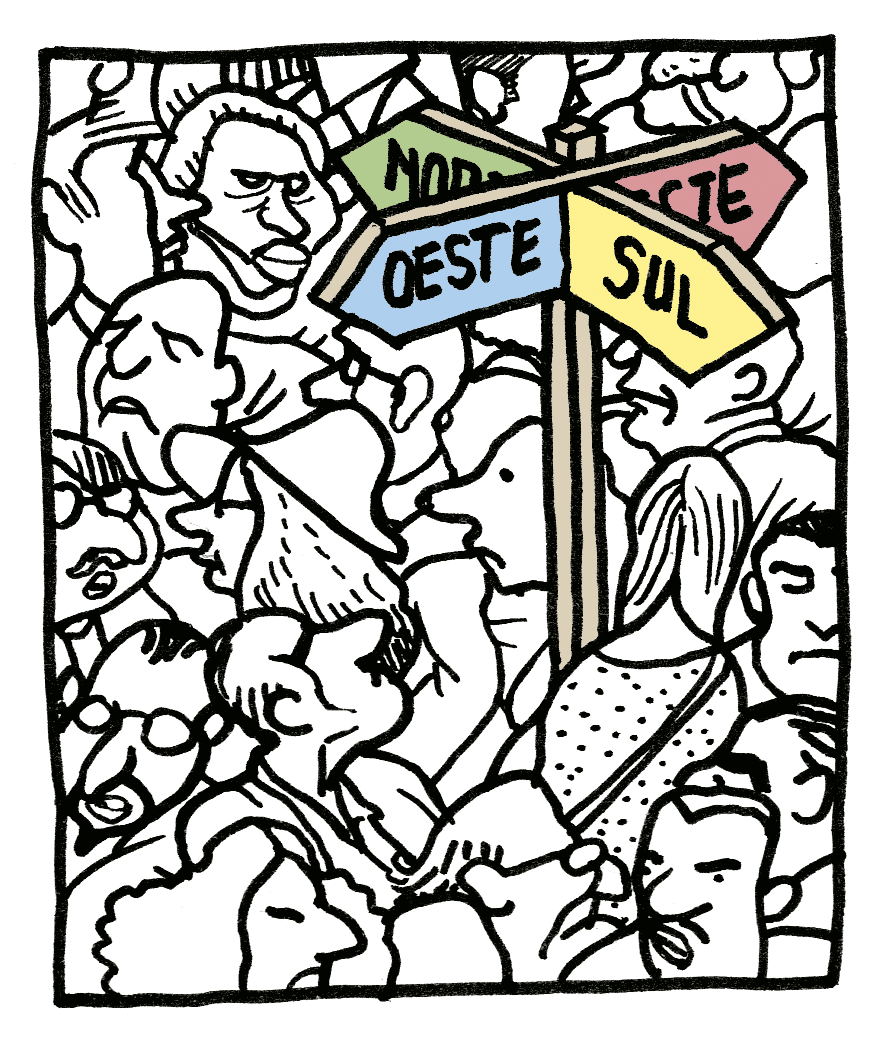 NOR
STE
OESTE
SUL